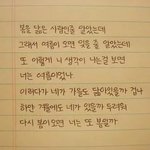 봄을 닮은 사람인줄 알았는데
그래서 여름이 오면 잊을 줄 알았는데
또 이렇게 니 생각이 나는걸 보면
너는 여름이었나
이러다가 네가 가을도 닮아있을까 겁나
하얀 겨울에도 네가 있을까 두려워
다시 봄이 오면 너는 또 봄일까